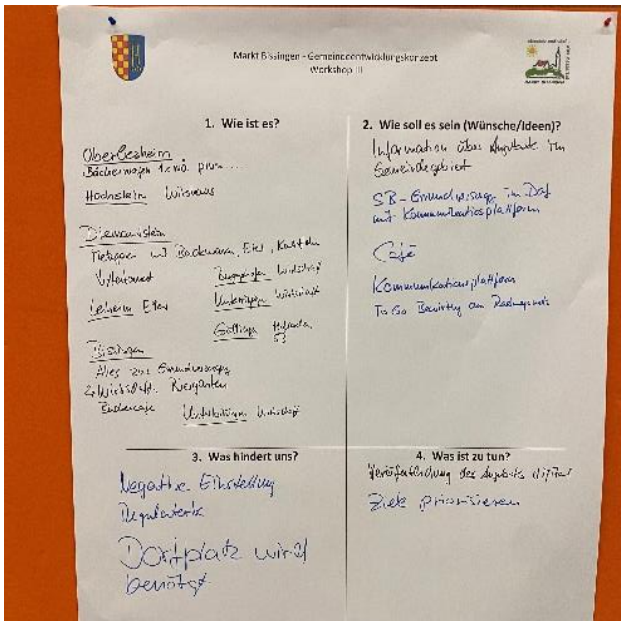 Markt Bissingen - Gemeindeentwicklungskonzept
Workshop III
1. Wie ist es?
Oberliezheim
Bäckerwagen 1x wö.
Hochstein Wirtshaus
Diemantstein
Backwaren, Eier, Kartoffeln
Leiheim Eier
Zoltingen
Unterringingen Wirtschaft
Göllingen Hofladen
Bissingen
Alles zur Grundversorgung
2x Wirtschaft Biergarten
Unterbissingen Wirtschaft
2. Wie soll es sein (Wünsche/Ideen)?
Information über Angebote im
Gemeindegebiet
SB-Grundversorgung im Dorf
mit Kommunikationsplattform
Café
Kommunikationsplattform
To Go Bewirtung am Radwegnetz
3. Was hindert uns?
Negative Einstellung
Regulatorik
Dorfplatz wird
benötigt
4. Was ist zu tun?
Veröffentlichung des Angebots digital
Ziele priorisieren